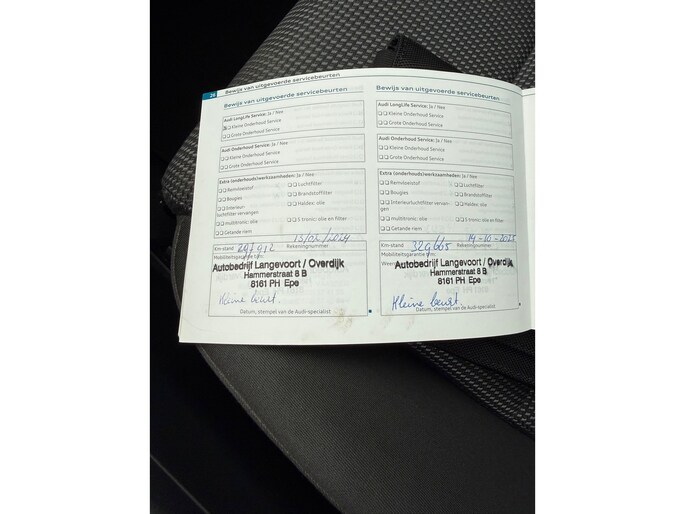 26
Bewijs van uitgevoerde servicebeurten
Bewijs van uitgevoerde servicebeurten
Audi LongLife Service: Ja / Nee
Kleine Onderhoud Service
Grote Onderhoud Service
Audi Onderhoud Service: Ja / Nee
Kleine Onderhoud Service
Grote Onderhoud Service
Extra (onderhouds)werkzaamheden: Ja / Nee
Remvloeistof
Luchtfilter
Bougies
Brandstoffilter
Interieur-
luchtfilter vervangen
Haldex: olie
multitronic: olie
S tronic: olie en filter
Getande riem
Km-stand
Rekeningnummer
Mobiliteitsgarantie t/m:
Autobedrijf Langevoort / Overdijk
Hammerstraat 8 B
8161 PH Epe
Kleine beurt.
Datum, stempel van de Audi-specialist
Bewijs van uitgevoerde servicebeurten
Audi LongLife Service: Ja / Nee
Kleine Onderhoud Service
Grote Onderhoud Service
Audi Onderhoud Service: Ja / Nee
Kleine Onderhoud Service
Grote Onderhoud Service
Extra (onderhouds)werkzaamheden: Ja / Nee
Remvloeistof
Luchtfilter
Bougies
Brandstoffilter
Interieurluchtfilter vervan-
gen
Haldex: olie
multitronic: olie
S tronic: olie en filter
Getande riem
14-10-2025
Km-stand 329665 Rekeningnummer
Mobiliteitsgarantie t/m:
Autobedrijf Langevoort / Overdijk
Hammerstraat 8 B
8161 PH Epe
Kleine beurt.
Datum, stempel van de Audi-specialist